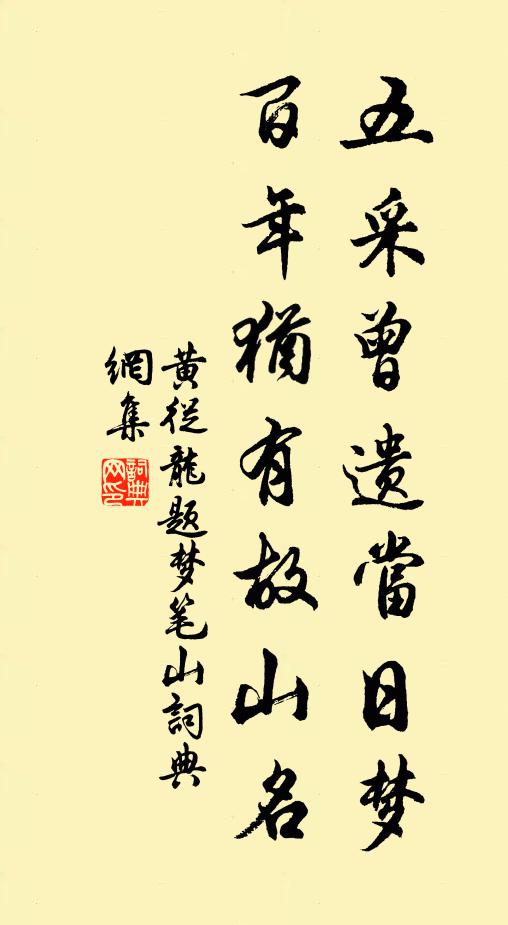 五采曾遗當日梦
百年猶有故山名
黄從龍题梦笔山詞典
網集
詞典
网印